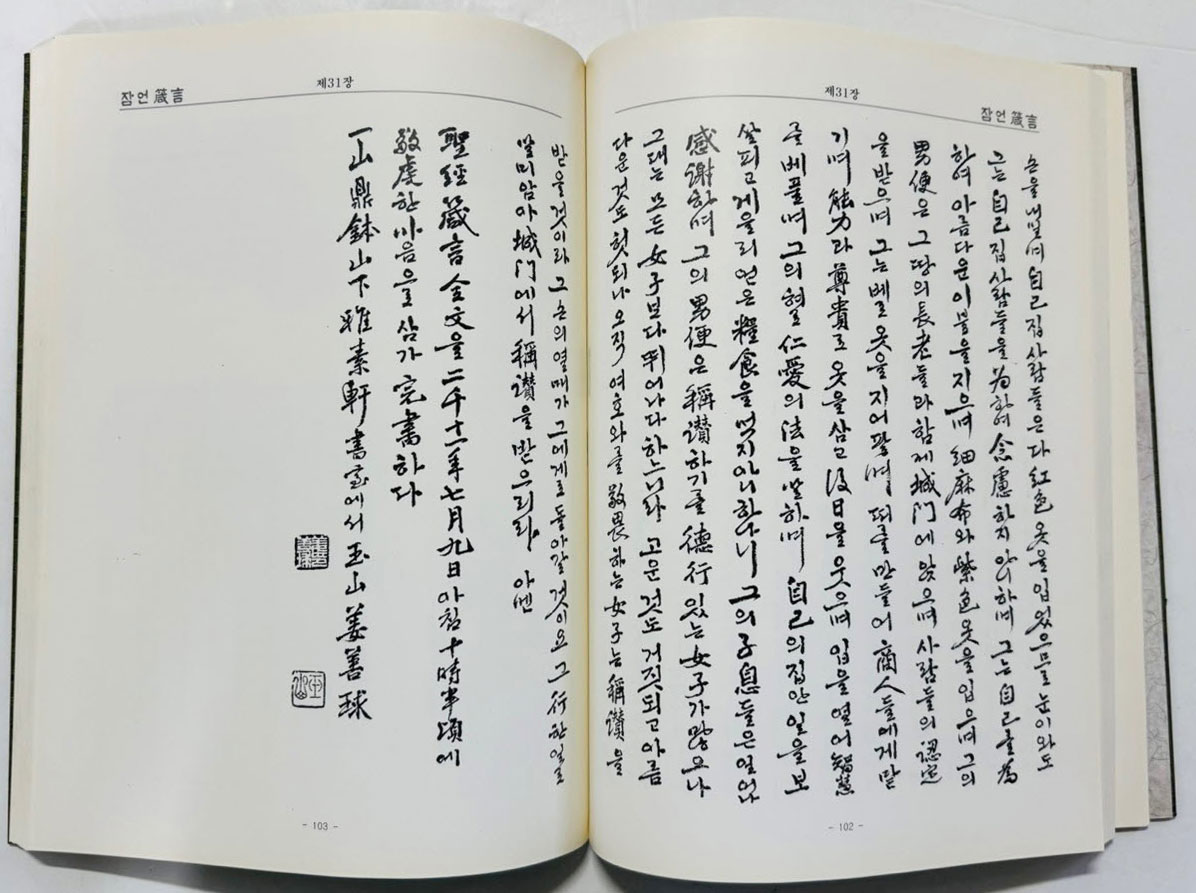 제31장
잠언 箴言
손을 내밀며 自己 집 사람들은 다 紅色 옷을 입었으므로 눈이 와도
그는 自己 집 사람들을 為하여 念慮하지 아니하며 그는 自己를 為
하여 아름다운 이불을 지으며 細麻布와 紫色 옷을 입으며 그의
男便은 그 땅의 長老들과 함께 城門에 앉으며 사람들의 認定
을 받으며 그는 베로 옷을 지어 팔며 띠를 만들어 商人들에게 맡
기며 能力과 尊貴로 옷을 삼고 後日을 웃으며 입을 열어 智慧
를 베풀며 그의 혀로 仁愛의 法을 말하며 自己의 집안 일을 보
살피고 게을리 얻은 糧食을 먹지 아니하나니 그의 子息들은 일어나
感謝하며 그의 男便은 稱讚하기를 德行 있는 女子가 많으나
그대는 모든 女子보다 뛰어나다 하느니라 고운 것도 거짓되고 아름
다운 것도 헛되나 오직 여호와를 敬畏하는 女子는 稱讚을
- 102 -
제31장
잠언 箴言
받을 것이라 그 손의 열매가 그에게로 돌아갈 것이요 그 行한 일로
말미암아 城門에서 稱讚을 받으리라 아멘
聖經 箴言 全文을 二千十一年 七月 九日 아침 十時半頃에
敬虔한 마음을 삼가 完書하다
一山 鼎鉢山下 雅素軒 書室에서 玉山 姜善球
- 103 -